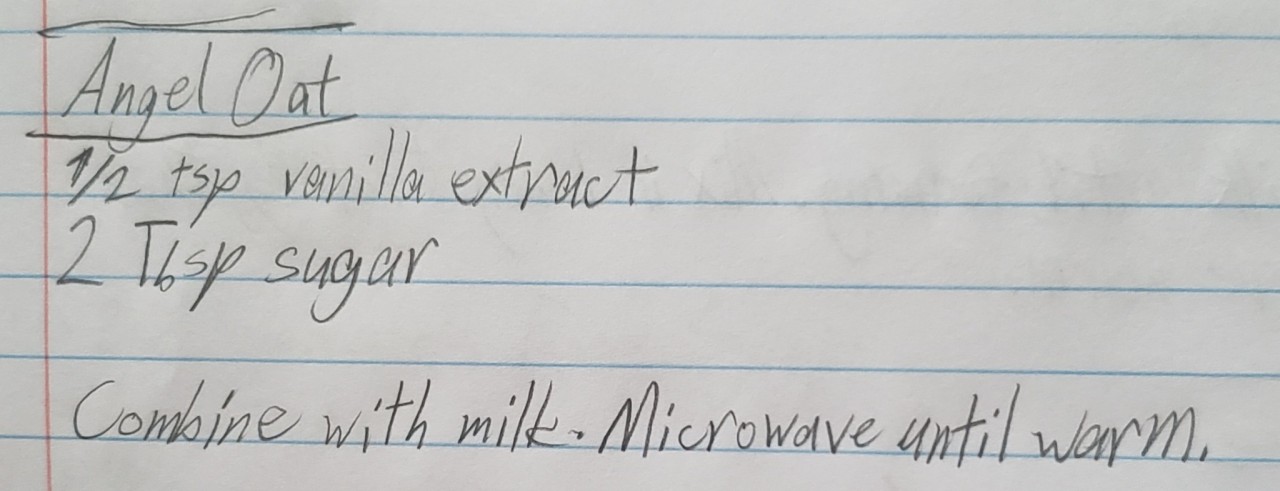 Angel Oat
1/2 tsp vanilla extract
2 Tbsp sugar
Combine with milk. Microwave until warm.